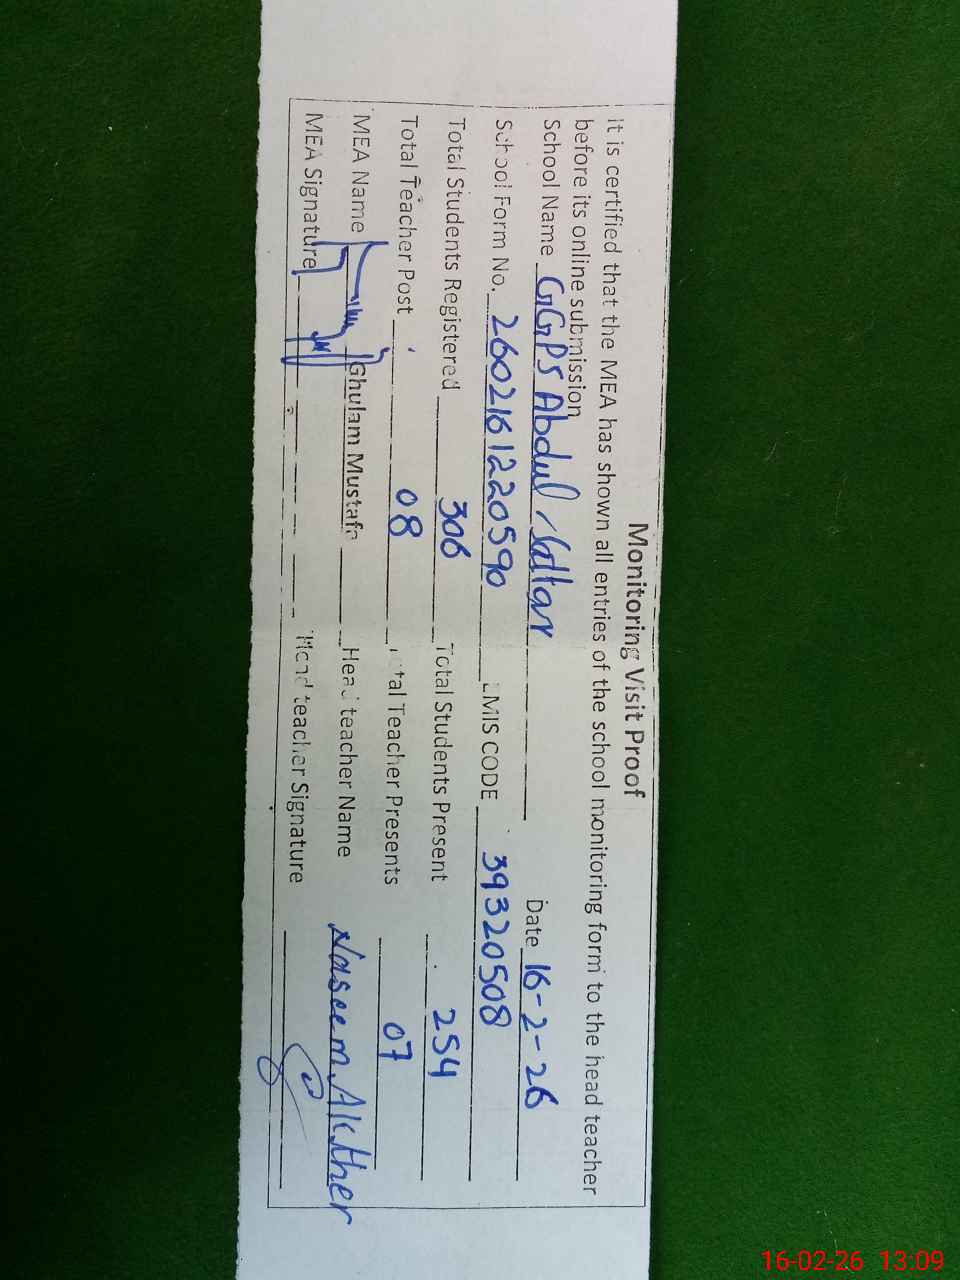 Monitoring Visit Proof
It is certified that the MEA has shown all entries of the school monitoring form to the head teacher
before its online submission
School Name GGPS Abdul Sattar Date 16-2-26
School Form No. 260216122059० EMIS CODE 39320508
Total Students Registered 306 Total Students Present 254
Total Teacher Post 08 Total Teacher Presents 07
MEA Name Ghulam Mustafa Head teacher Name Naseem Akther
MEA Signature Head teacher Signature
16-02-26 13:09